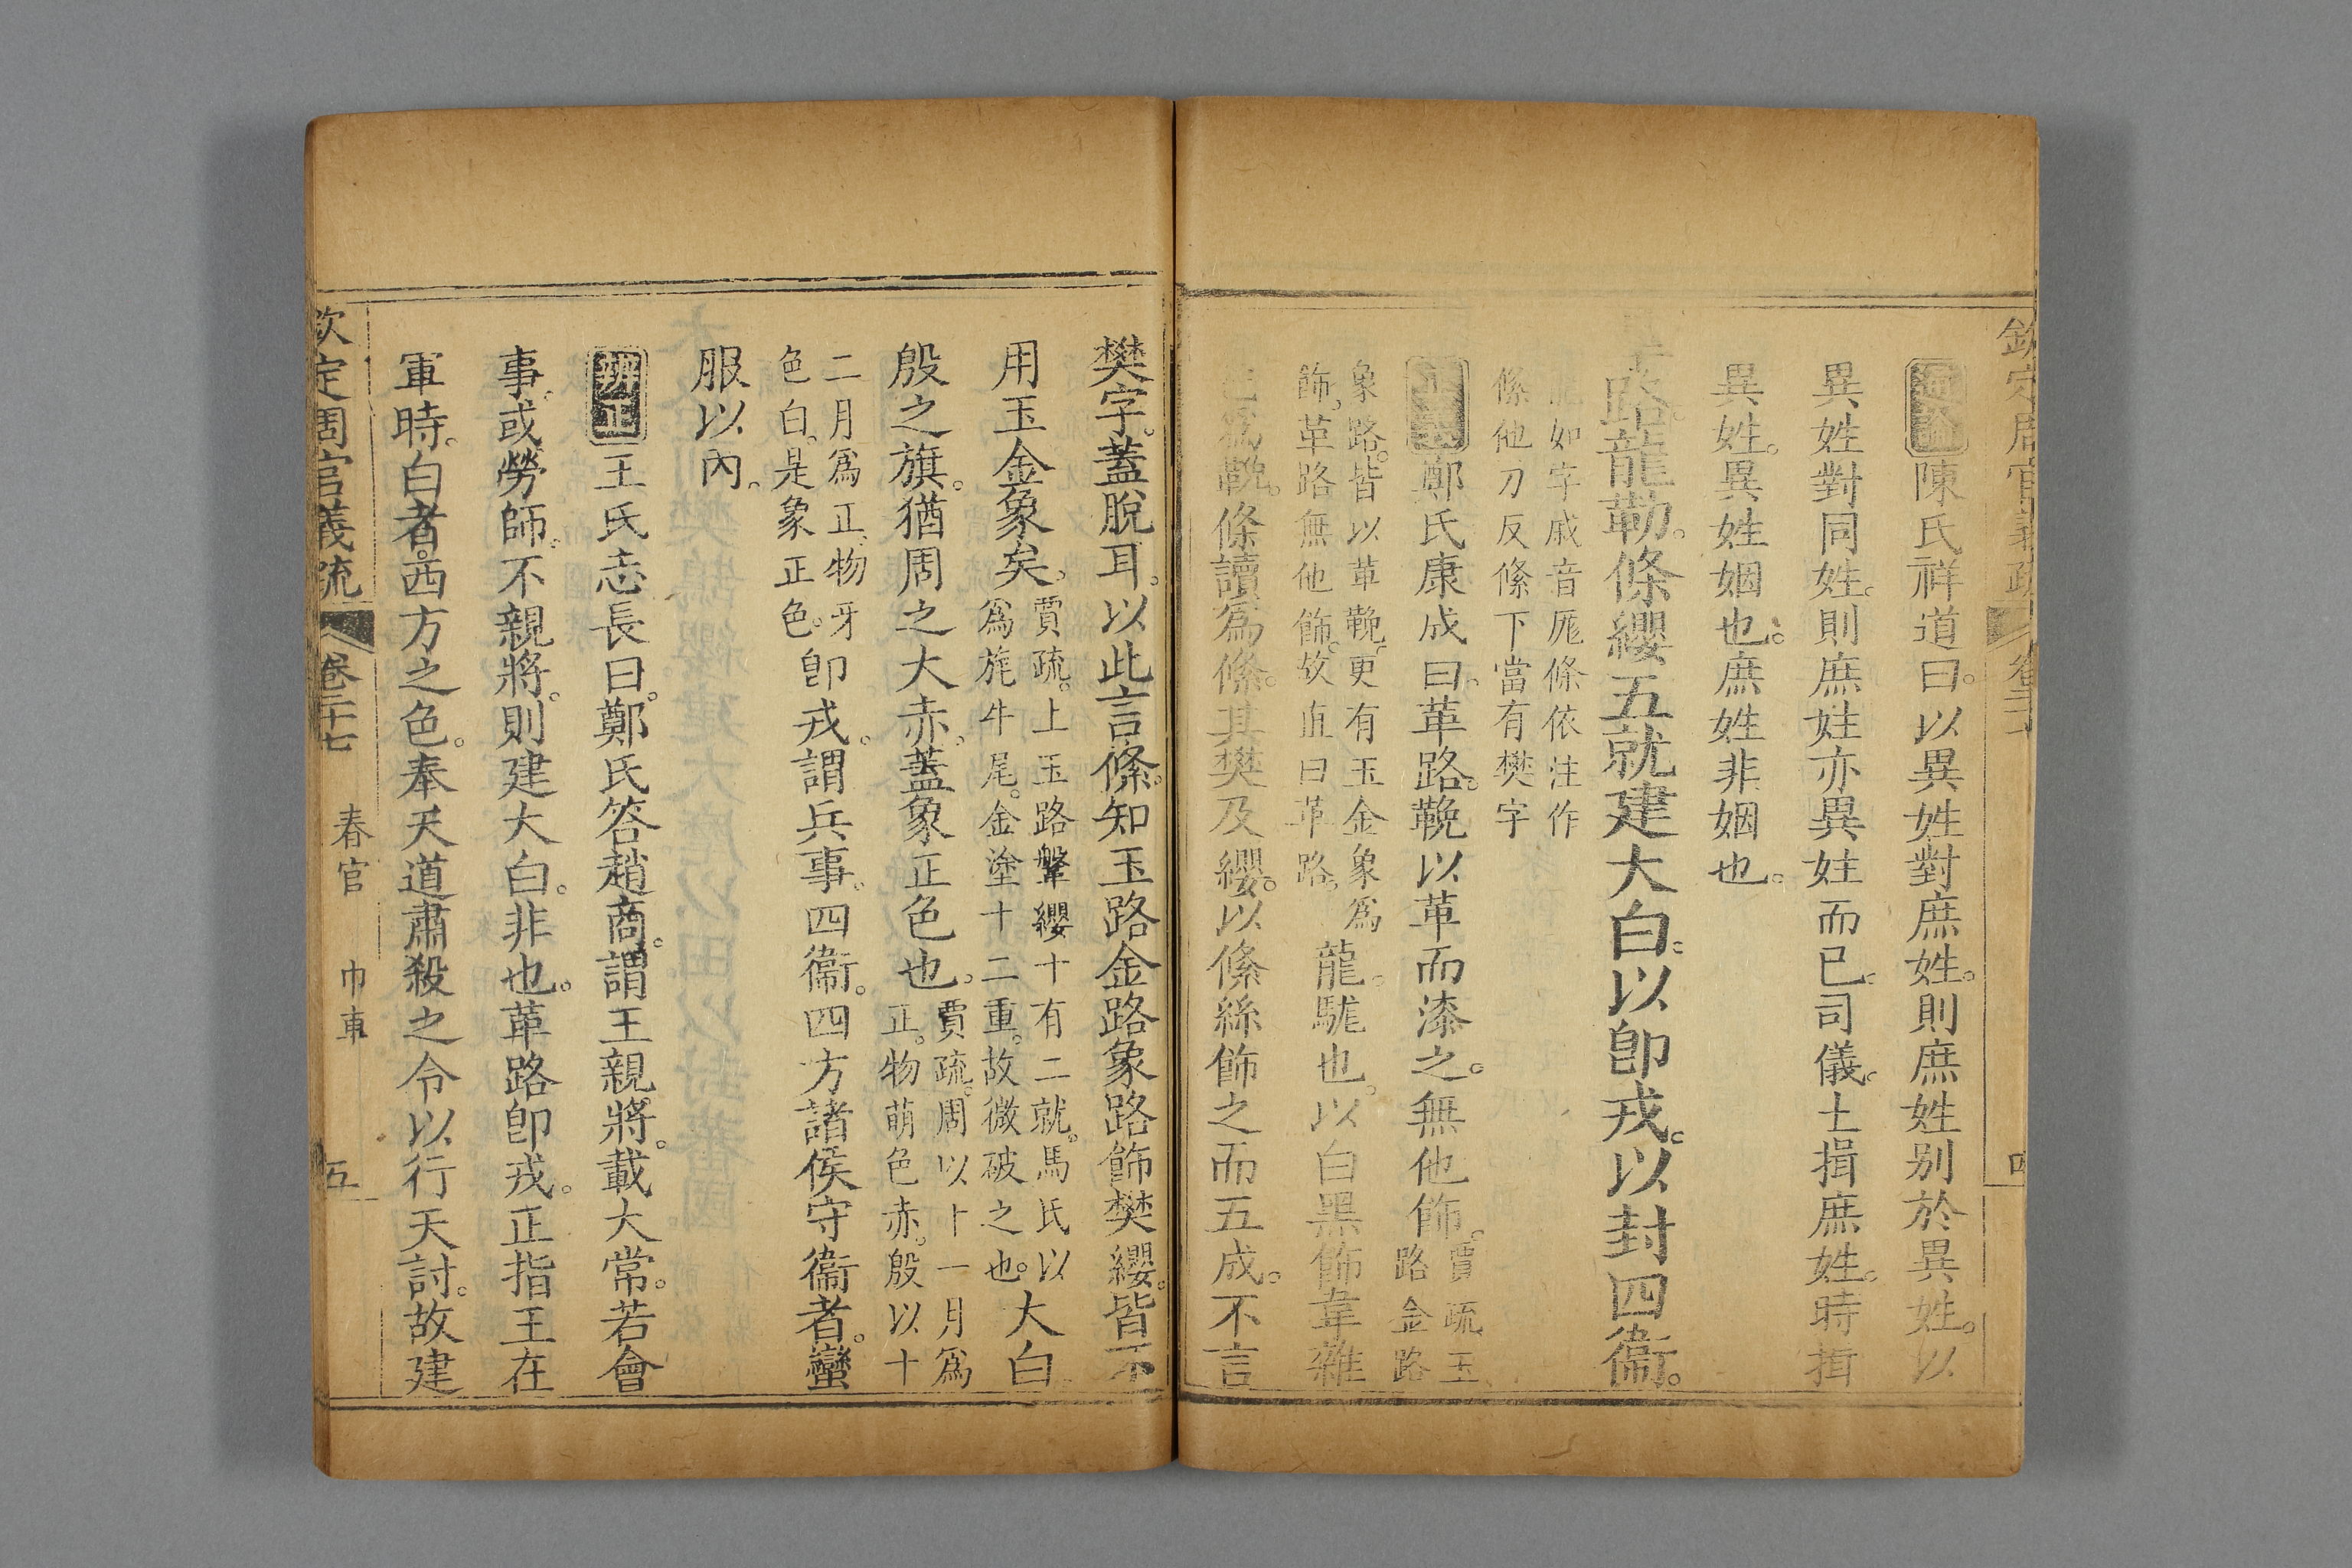 欽定周官義疏 卷二十 四
通論陳氏祥道曰以異姓對庶姓則庶姓別於異姓以
異姓對同姓則庶姓亦異姓而已司儀土揖庶姓時揖
異姓異姓姻也庶姓非姻也
革路龍勒條纓五就建大白以卽戎以封四衞
龍如字戚音厖條依注作
絛他刀反絛下當有樊字
正義鄭氏康成曰革路鞔以革而漆之無他飾賈疏玉路金路
象路皆以革鞔更有玉金象爲
飾革路無他飾故直曰革路龍駹也以白黑飾韋雜
色爲勒條讀爲絛其樊及纓以絛絲飾之而五成不言
樊字蓋脫耳以此言絛知玉路金路象路飾樊纓皆不
用玉金象矣賈疏上玉路鞶纓十有二就馬氏以
爲旄牛尾金塗十二重故微破之也大白
殷之旗猶周之大赤蓋象正色也賈疏周以十一月爲
正物萌色赤殷以十
二月爲正物牙
色白是象正色卽戎謂兵事四衞四方諸侯守衞者蠻
服以內
辨正王氏志長曰鄭氏答趙商謂王親將載大常若會
事或勞師不親將則建大白非也革路卽戎正指王在
軍時白者西方之色奉天道肅殺之令以行天討故建
欽定周官義疏 卷二十七 春官 巾車 五